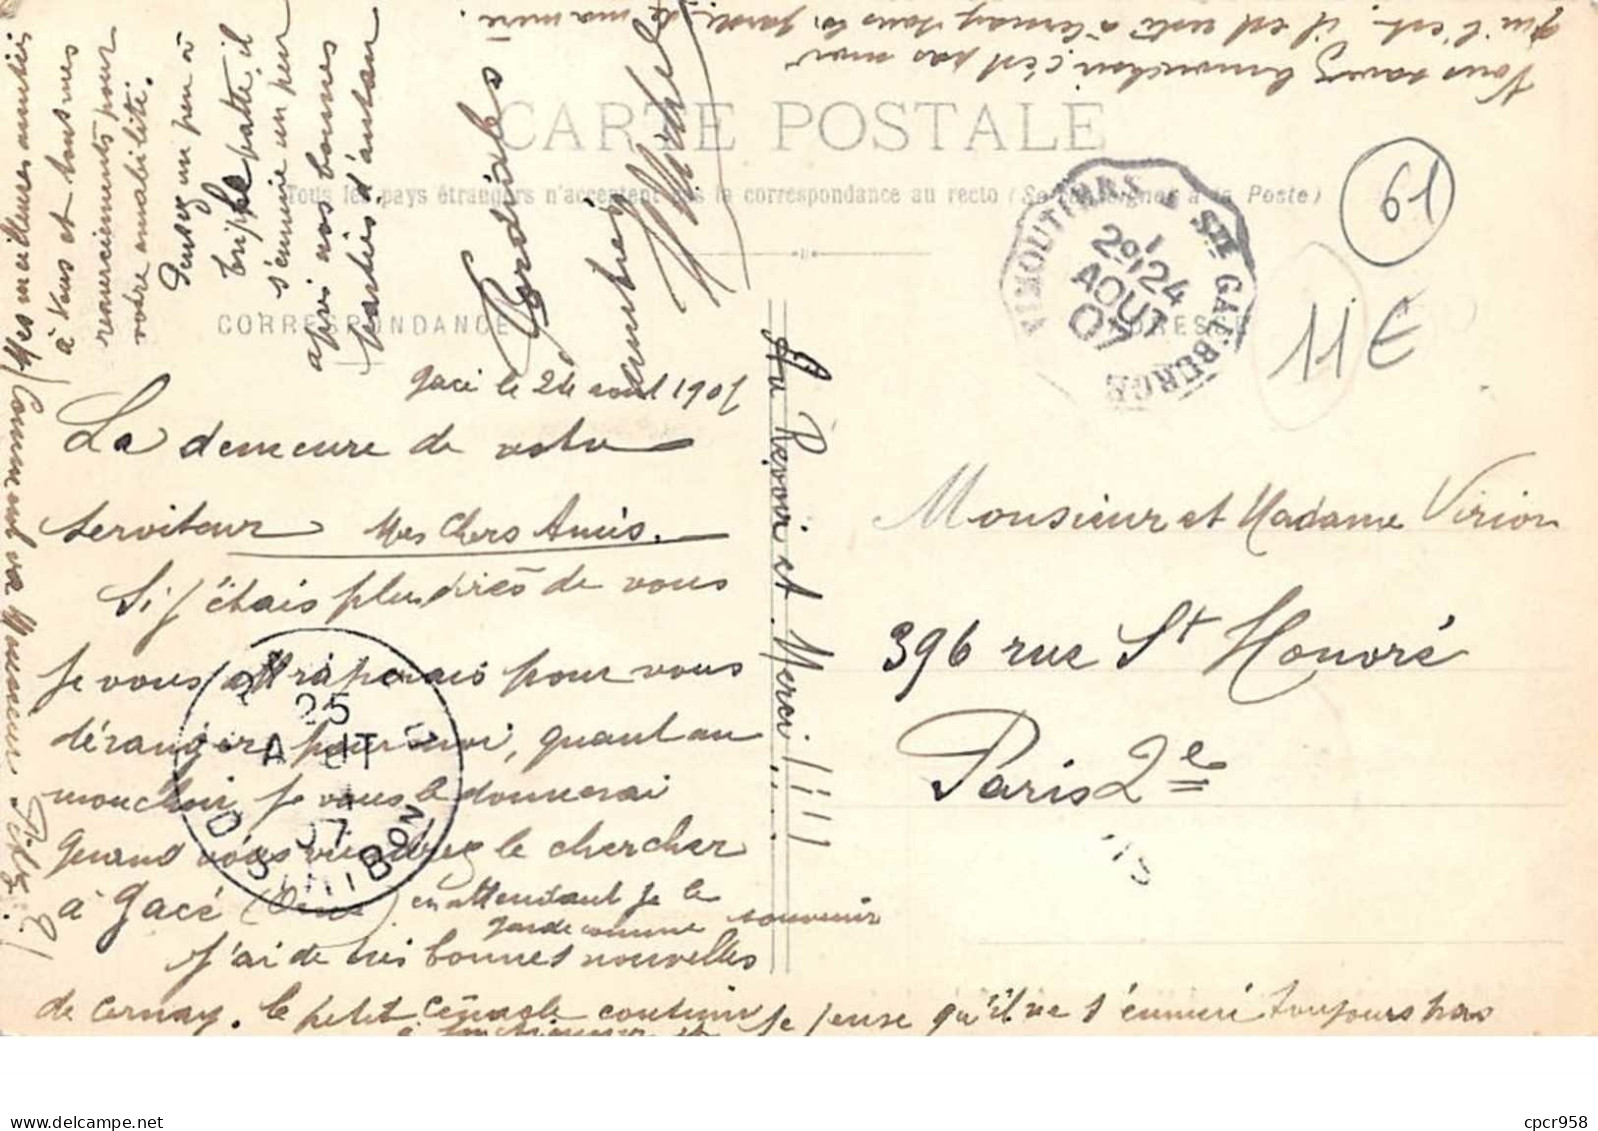 Vous savez le mouchoir, c'est pas moi
qui l'est, il est resté à Cernay dans la
CARTE POSTALE
Tous les pays étrangers n'acceptent pas la correspondance au recto (Se renseigner à la Poste)
CORRESPONDANCE
ADRESSE
VIMOUTIERS A STE GAUBURGE
24
AOUT
07
61
11€
Gacé le 24 août 1907
La demeure de votre
serviteur Mes Chers Amis.
Si j'étais plus près de vous
je vous attraperais pour vous
déranger pour moi, quant au
mouchoir je vous le donnerai
quand vous viendrez le chercher
à Gacé (Orne) en attendant je le
garde comme souvenir
J'ai de très bonnes nouvelles
de Cernay. le petit Cénacle continue
je pense qu'il ne s'ennuie toujours pas
25
AOUT
07
DISTRIBUTION
Monsieur et Madame Virion
396 rue St Honoré
Paris 2e
Au Revoir et Merci !!!!
Mes meilleures amitiés
à Vous et tous mes
remerciements pour
votre amabilité.
Pensez un peu à
Trippe patte il
s'ennuie un peu
après nos bonnes
parties d'antan
Cordiales
Michel
Comment va Monsieur
cpcr958